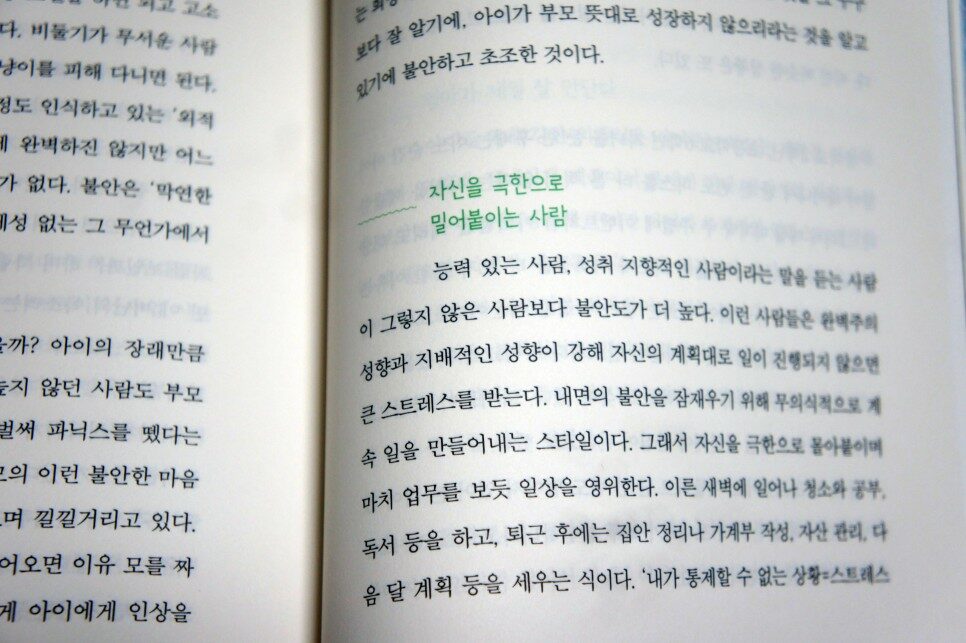 피고 고소
다. 비둘기가 무서운 사람
냥이를 피해 다니면 된다.
정도 인식하고 있는 ‘외적
완벽하진 않지만 어느
가 없다. 불안은 ‘막연한
체성 없는 그 무언가에서
을까? 아이의 장래만큼
높지 않던 사람도 부모
벌써 파닉스를 뗐다는
모의 이런 불안한 마음
며 낄낄거리고 있다.
어오면 이유 모를 짜
게 아이에게 인상을
보다 잘 알기에, 아이가 부모 뜻대로 성장하지 않으리라는 것을 알고
있기에 불안하고 초조한 것이다.
자신을 극한으로
밀어붙이는 사람
능력 있는 사람, 성취 지향적인 사람이라는 말을 듣는 사람
이 그렇지 않은 사람보다 불안도가 더 높다. 이런 사람들은 완벽주의
성향과 지배적인 성향이 강해 자신의 계획대로 일이 진행되지 않으면
큰 스트레스를 받는다. 내면의 불안을 잠재우기 위해 무의식적으로 계
속 일을 만들어내는 스타일이다. 그래서 자신을 극한으로 몰아붙이며
마치 업무를 보듯 일상을 영위한다. 이른 새벽에 일어나 청소와 공부,
독서 등을 하고, 퇴근 후에는 집안 정리나 가계부 작성, 자산 관리, 다
음 달 계획 등을 세우는 식이다. ‘내가 통제할 수 없는 상황=스트레스